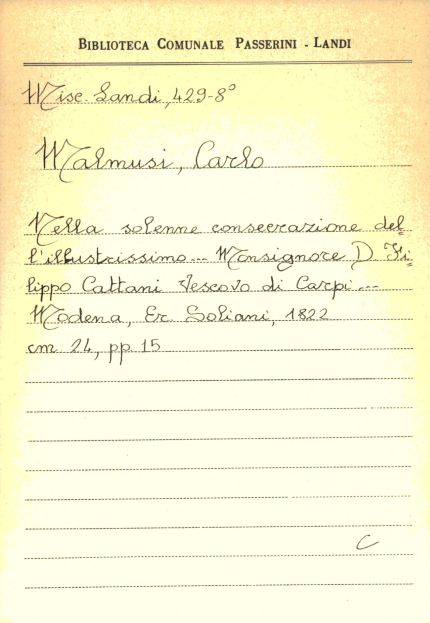 BIBLIOTECA COMUNALE PASSERINI - LANDI
Misc. Landi, 429-8°
Malmusi, Carlo
Nella solenne consecrazione del=
l'illustrissimo... Monsignore D. Fi=
lippo Cattani Vescovo di Carpi...
Modena, Er. Soliani, 1822
cm 24, pp. 15
C